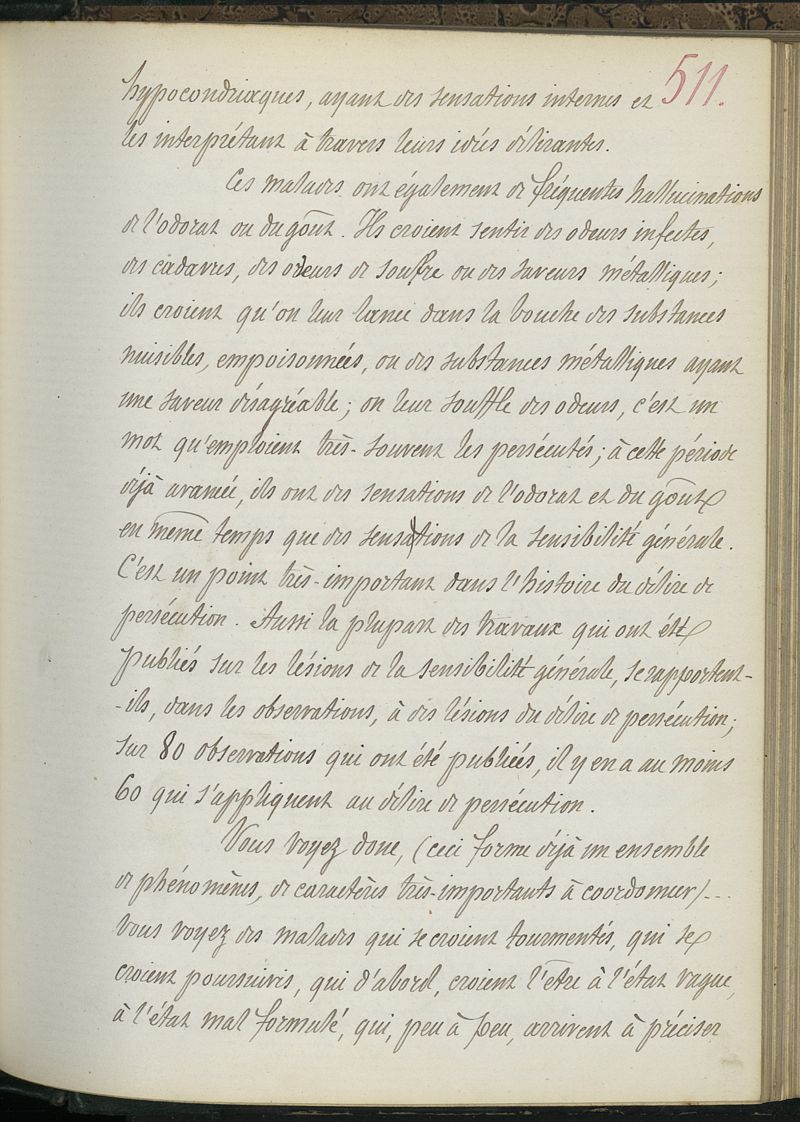 511.
hypocondriaques, ayant des sensations internes et
les interprétant à travers leurs idées délirantes.
Ces malades ont également de fréquentes hallucinations
de l'odorat ou du goût. Ils croient sentir des odeurs infectes,
des cadavres, des odeurs de soufre ou des saveurs métalliques;
ils croient qu'on leur lance dans la bouche des substances
nuisibles, empoisonnées, ou des substances métalliques ayant
une saveur désagréable; on leur souffle des odeurs, c'est un
mot qu'emploient très-souvent les persécutés; à cette période
déjà avancée, ils ont des sensations de l'odorat et du goût
en même temps que des sensations de la sensibilité générale.
C'est un point très-important dans l'histoire du délire de
persécution. Aussi la plupart des travaux qui ont été
publiés sur les lésions de la sensibilité générale, se rapportent-
-ils, dans les observations, à des lésions du délire de persécution;
sur 80 observations qui ont été publiées, il y en a au moins
60 qui s'appliquent au délire de persécution.
Vous voyez donc, (ceci forme déjà un ensemble
de phénomènes, de caractères très-importants à coordonner)...
vous voyez des malades qui se croient tourmentés, qui se
croient poursuivis, qui d'abord, croient l'être à l'état vague,
à l'état mal formulé, qui, peu à peu, arrivent à préciser